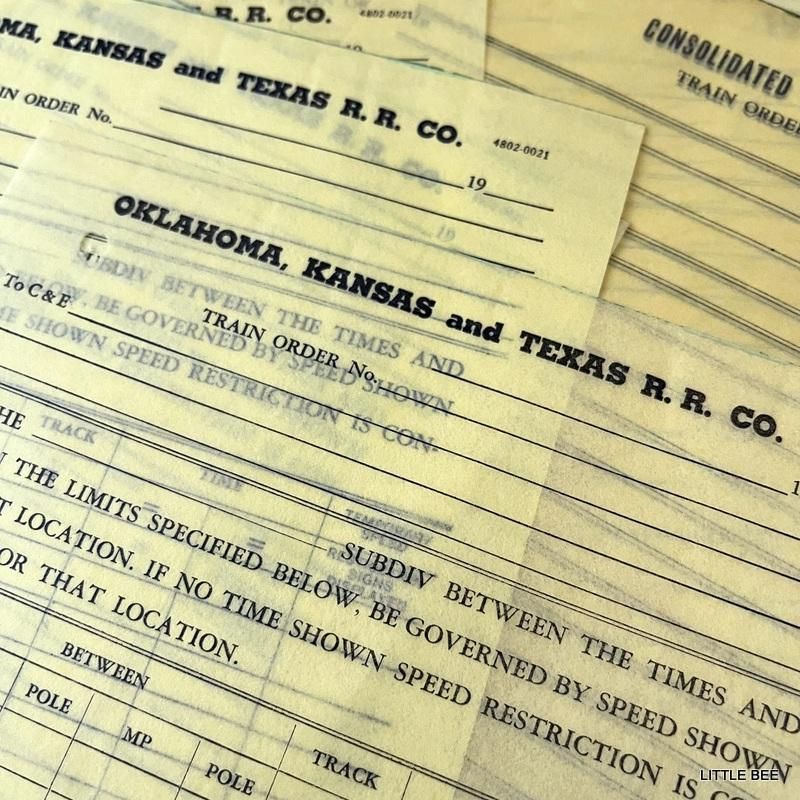 R. R. CO. 4802-0021
CONSOLIDATED
TRAIN ORDER
MA, KANSAS and TEXAS R. R. CO.
IN ORDER No. 4802-0021
19
OKLAHOMA, KANSAS and TEXAS R. R. CO.
SUBDIV BETWEEN THE TIMES AND
BELOW, BE GOVERNED BY SPEED SHOWN
ME SHOWN SPEED RESTRICTION IS CON-
To C & E
TRAIN ORDER No.
1
HE
TRACK
TIME
TEMPORARY
SPEED
SIGNS
SUBDIV BETWEEN THE TIMES AND
N THE LIMITS SPECIFIED BELOW, BE GOVERNED BY SPEED SHOWN
T LOCATION. IF NO TIME SHOWN SPEED RESTRICTION IS CO
OR THAT LOCATION.
BETWEEN
POLE MP POLE TRACK
LITTLE BEE